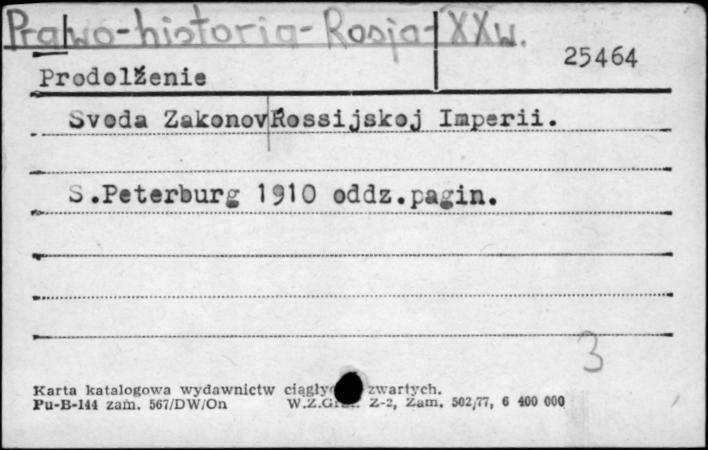 Prawo-historia-Rosja-XXw.
25464
Prodolženie
Svoda Zakonov Rossijskoj Imperii.
S.Peterburg 1910 oddz.pagin.
3
Karta katalogowa wydawnictw zwartych.
Pu-B-144 zam. 567/DW/On W.Z.Graf. Z-2, Zam. 502/77, 6 400 000